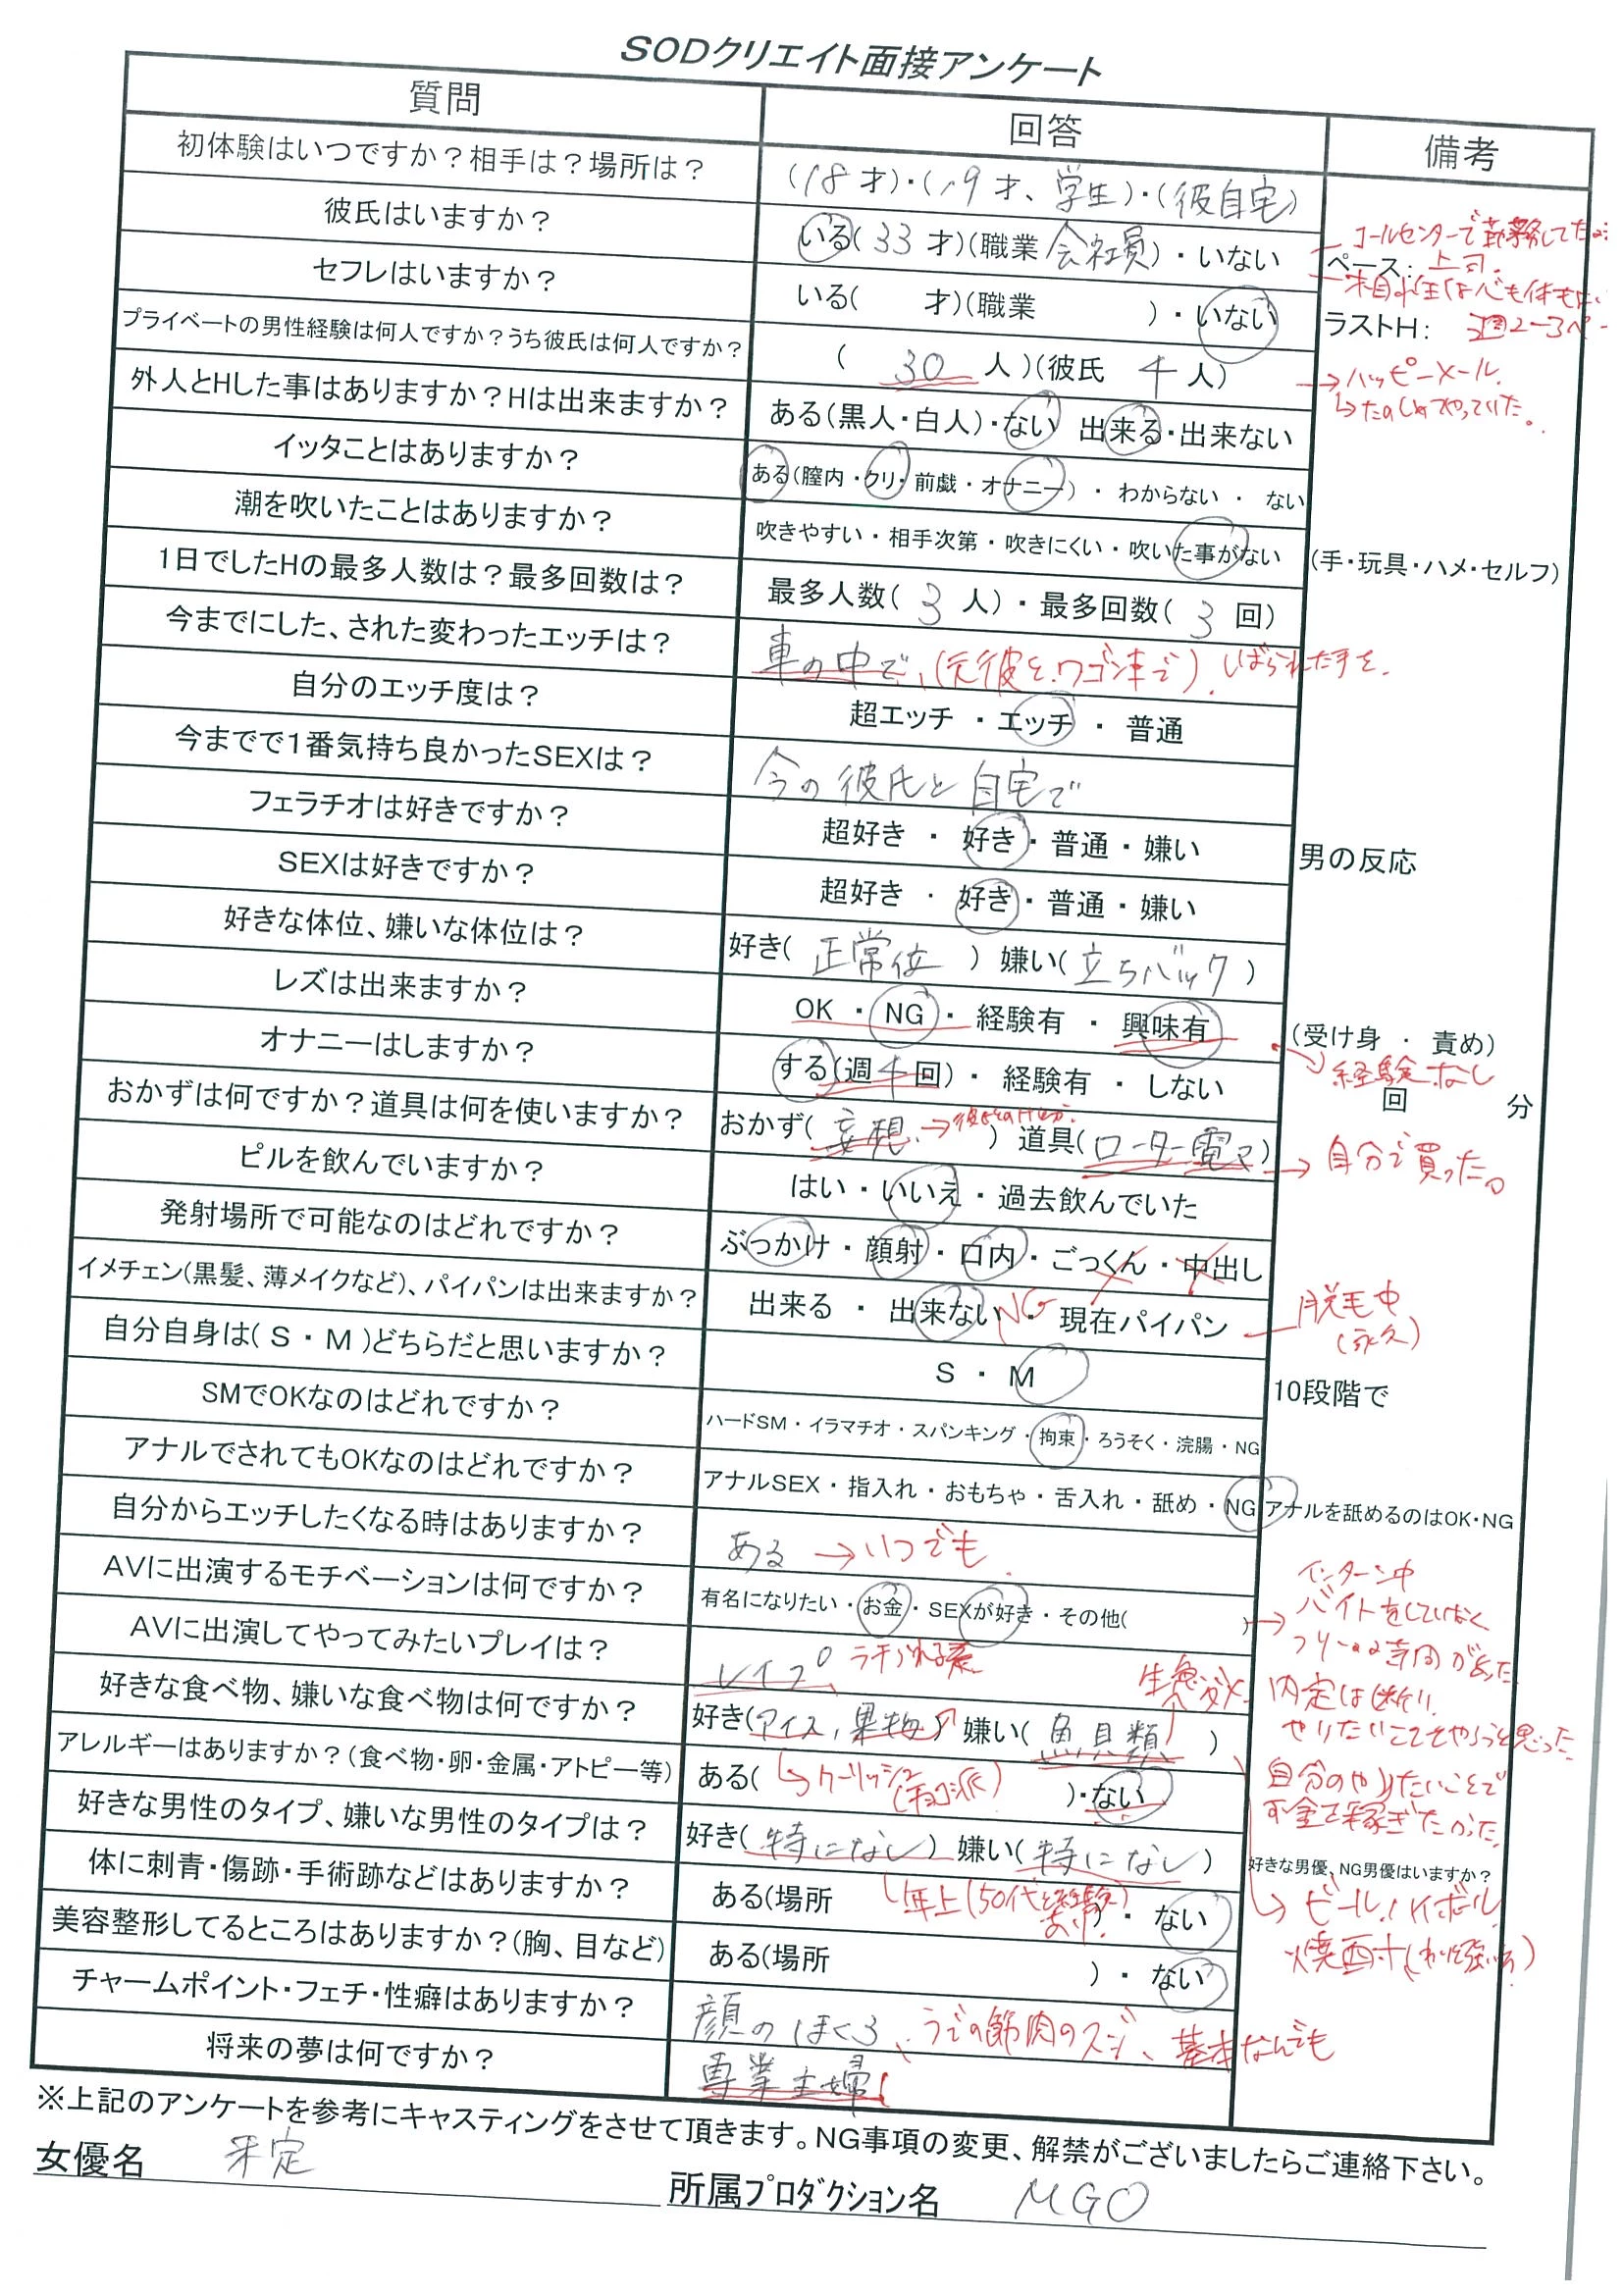 SODクリエイト面接アンケート
質問 回答 備考
初体験はいつですか？相手は？場所は？ (18才)・(19才、学生)・(彼自宅)
彼氏はいますか？ いる(33才)(職業 会社員)・いない
コールセンターで勤務してた
ペース： 上司.
セフレはいますか？ いる( 才)(職業 )・いない
相性は心も体も
ラストH： 週2-3ペー
プライベートの男性経験は何人ですか？うち彼氏は何人ですか？ ( 30 人)(彼氏 4 人)
→ハッピーメール.
↳たのしんでやっていた。
外人とHした事はありますか？Hは出来ますか？ ある(黒人・白人)・ない 出来る・出来ない
イッタことはありますか？ ある(膣内・クリ・前戯・オナニー)・わからない・ない
潮を吹いたことはありますか？ 吹きやすい・相手次第・吹きにくい・吹いた事がない (手・玩具・ハメ・セルフ)
1日でしたHの最多人数は？最多回数は？ 最多人数( 3 人)・最多回数( 3 回)
今までにした、された変わったエッチは？ 車の中で、(元彼と.ワゴン車で). しばられた手を.
自分のエッチ度は？ 超エッチ・エッチ・普通
今までで1番気持ち良かったSEXは？ 今の彼氏と自宅で
フェラチオは好きですか？ 超好き・好き・普通・嫌い 男の反応
SEXは好きですか？ 超好き・好き・普通・嫌い
好きな体位、嫌いな体位は？ 好き( 正常位 ) 嫌い( 立ちバック )
レズは出来ますか？ OK・NG・経験有・興味有 (受け身・責め)
→経験なし
オナニーはしますか？ する(週4回)・経験有・しない 回 分
おかずは何ですか？道具は何を使いますか？ おかず( 妄想. ) 道具(ローター電マ) →自分で買った。
ピルを飲んでいますか？ はい・いいえ・過去飲んでいた
発射場所で可能なのはどれですか？ ぶっかけ・顔射・口内・ごっくん・中出し
イメチェン(黒髪、薄メイクなど)、パイパンは出来ますか？ 出来る・出来ない・現在パイパン
NG
脱毛中
(永久)
自分自身は( S・M )どちらだと思いますか？ S・M 10段階で
SMでOKなのはどれですか？ ハードSM・イラマチオ・スパンキング・拘束・ろうそく・浣腸・NG
アナルでされてもOKなのはどれですか？ アナルSEX・指入れ・おもちゃ・舌入れ・舐め・NG アナルを舐めるのはOK・NG
自分からエッチしたくなる時はありますか？ ある→いつでも.
AVに出演するモチベーションは何ですか？ 有名になりたい・お金・SEXが好き・その他( )
インターン中
→バイトをしていなく
フリーな時間があった
AVに出演してやってみたいプレイは？ レイプ
内定は断り
やりたいことをやろうと思った
好きな食べ物、嫌いな食べ物は何ですか？ 好き(アイス,果物) 嫌い( 魚貝類 )
生魚がダメ
自分のやりたいことで
お金を稼ぎたかった
アレルギーはありますか？(食べ物・卵・金属・アトピー等) ある( )・ない
↳クーリッシュ
(チョコ派)
好きな男性のタイプ、嫌いな男性のタイプは？ 好き( 特になし ) 嫌い( 特になし ) 好きな男優、NG男優はいますか？
年上(50代と経験
あり).
→ビール.ハイボール
体に刺青・傷跡・手術跡などはありますか？ ある(場所 )・ない
美容整形してるところはありますか？(胸、目など) ある(場所 )・ない
チャームポイント・フェチ・性癖はありますか？ 顔のほくろ、うでの筋肉のスジ、基本なんでも
将来の夢は何ですか？ 専業主婦
※上記のアンケートを参考にキャスティングをさせて頂きます。NG事項の変更、解禁がございましたらご連絡下さい。
女優名 未定 所属プロダクション名 MGO